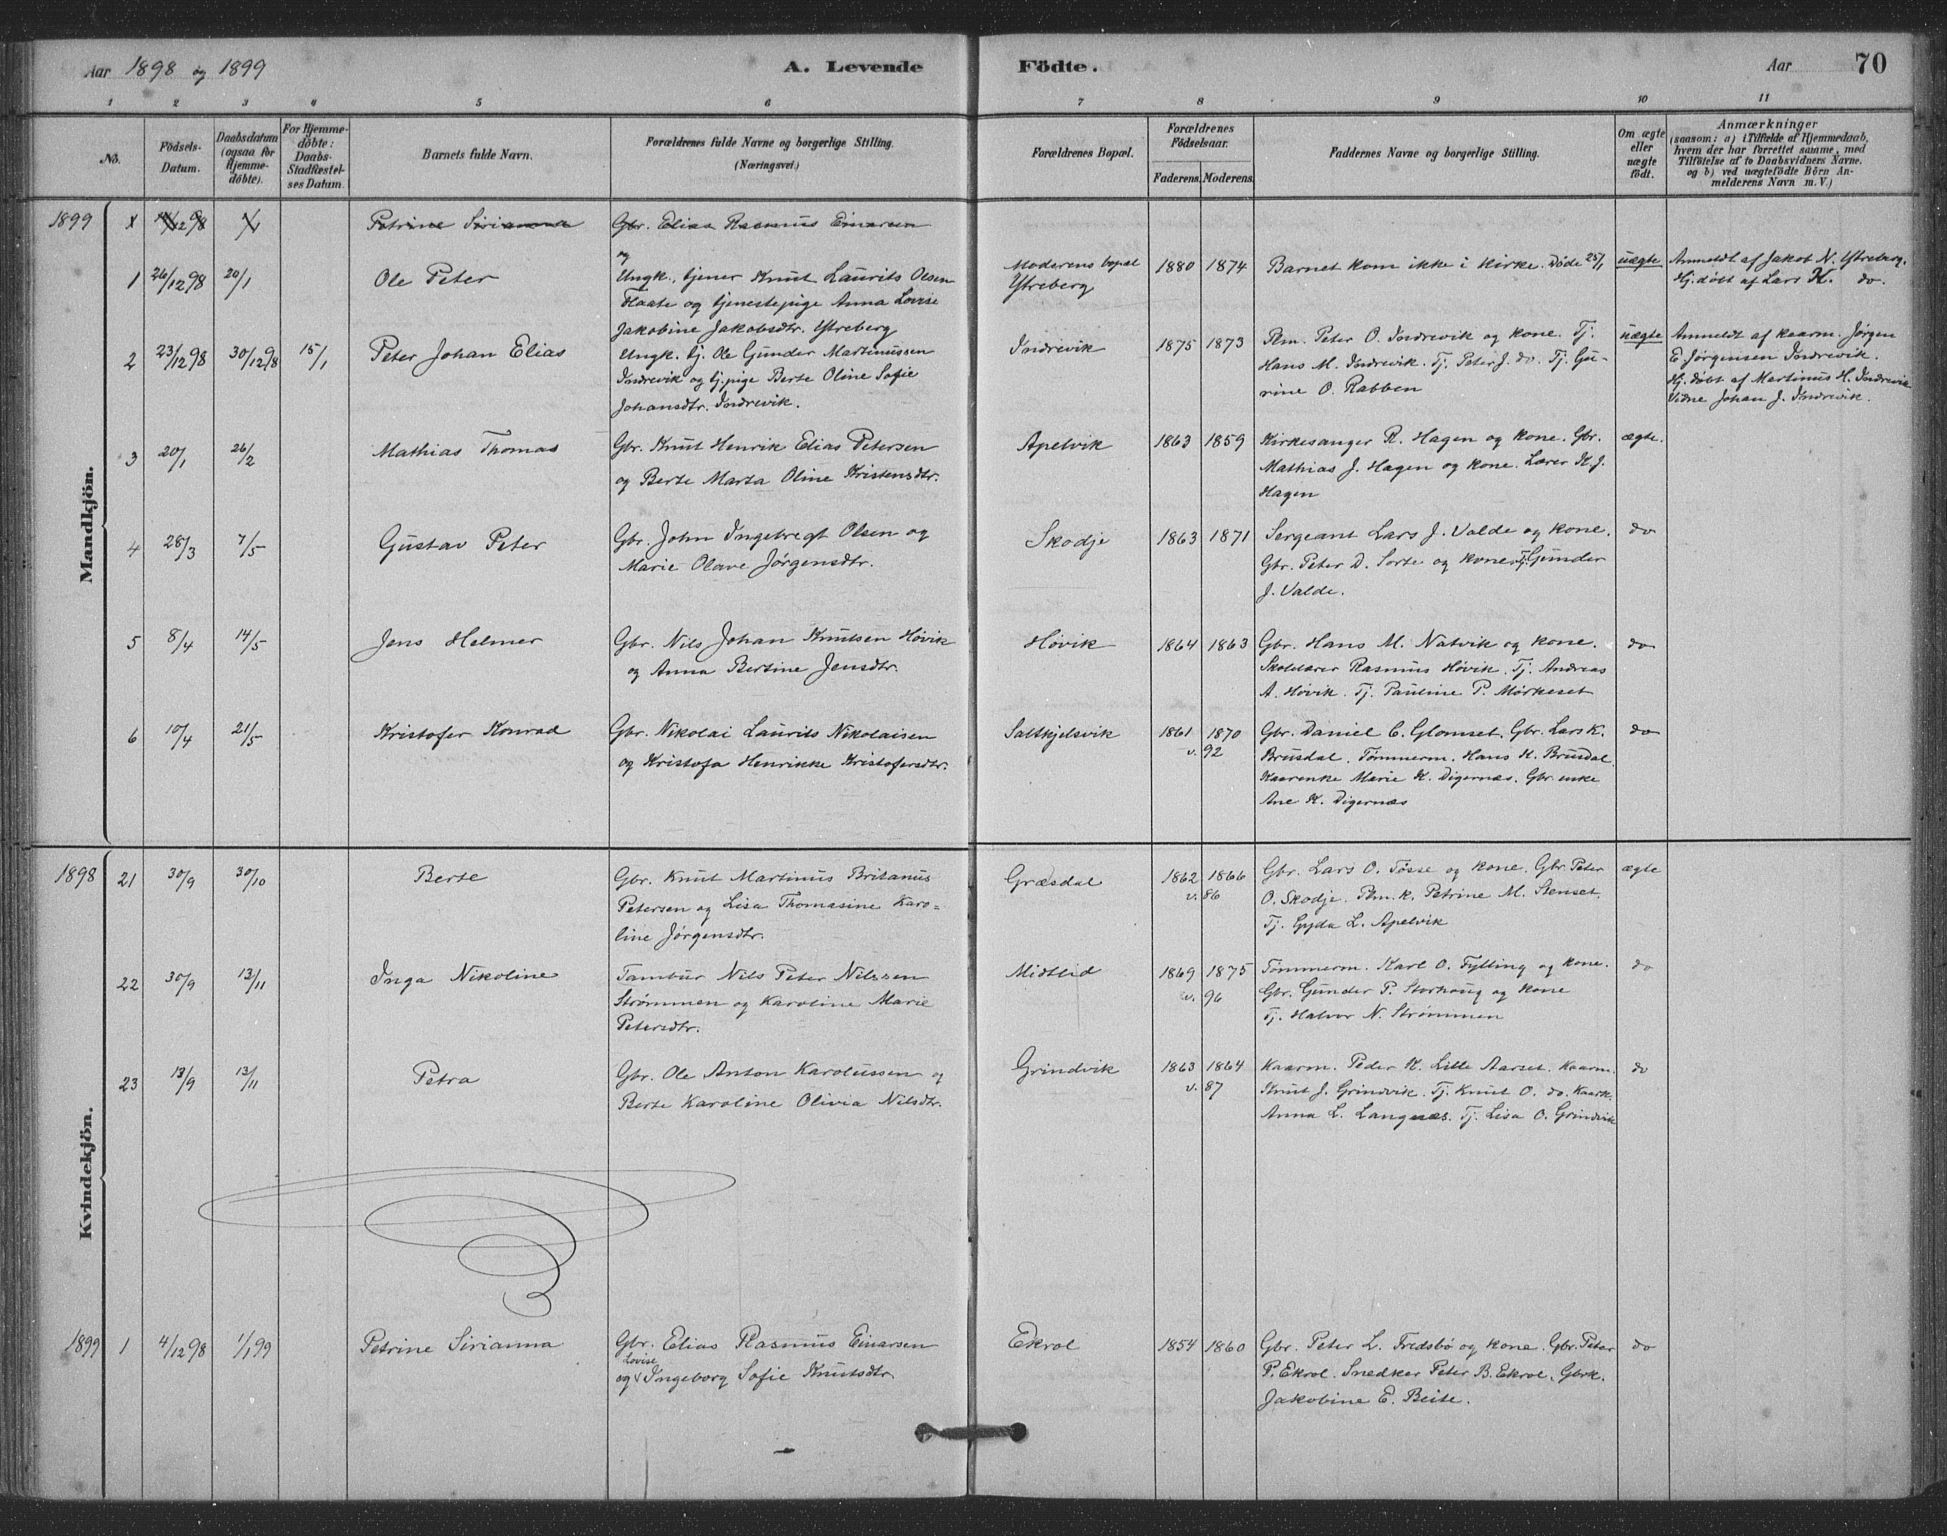 Aar 1898 og 1899 A. Levende Födte. Aar 70
1 2 3 4 5 6 7 8 9 10 11
No.
Födsels-
Datum.
Daabsdatum
(ogsaa for
Hjemme-
döbte).
For Hjemme-
döbte:
Daabs-
Stadfæstel-
ses Datum.
Barnets fulde Navn.
Forældrenes fulde Navne og borgerlige Stilling.
(Næringsvei.)
Forældrenes Bopæl.
Forældrenes
Födselsaar.
Faderens. Moderens.
Faddernes Navne og borgerlige Stilling.
Om ægte
eller
uægte
födt.
Anmærkninger
(saasom: a) i Tilfælde af Hjemmedaab,
hvem der har forrettet samme, med
Tilföielse af to Daabsvidners Navne.
og b) ved uægtefödte Börn An-
melderens Navn m. V.)
Mandkjön.
1899 Petrine Sirianna Gbr. Elias Rasmus Einarsen
og
1 26/12 98 20/1 Ole Peter Ungk. tjener Knut Laurits Olsen Moderens bopæl 1880 1874 Barnet kom ikke i kirke. Döde 25/1 uægte Anmeldt af Jakob N. Ytreberg.
Flaate og tjenestepige Anna Lovise Ytreberg Hj. döbt af Lars K. do.
Jakobine Jakobsdtr. Ytreberg
2 23/12 98 30/12 98 15/1 Peter Johan Elias Ungk. tj. Ole Gunder Martinussen Indrevik 1875 1873 Plm. Peter O. Indrevik og kone. Tj. uægte Anmeldt af kaarm. Jørgen
Indrevik og tj.pige Berte Oline Sofie Hans M. Indrevik. Tj. Peter J. do. Tj. Gu- E. Jørgensen Indrevik.
Johansdtr. Indrevik. rine O. Rabben Hj. döbt af Martinus H. Indrevik
Vidne Johan J. Indrevik.
3 20/1 26/2 Mathias Thomas Gbr. Knut Henrik Elias Petersen Apelvik 1863 1859 Kirkesanger R. Hagen og kone. Gbr. ægte.
og Berte Marta Oline Kristensdtr. Mathias J. Hagen og kone. Lærer K. J.
Hagen
4 28/3 7/5 Gustav Peter Gbr. John Ingebregt Olsen og Skodje 1863 1871 Sergeant Lars J. Valde og kone. do
Marie Olave Jørgensdtr. Gbr. Peter D. Sorte og kone. Tj. Gunder
J. Valde.
5 8/4 14/5 Jens Helmer Gbr. Nils Johan Knutsen Høvik Høvik 1864 1863 Gbr. Hans M. Natvik og kone. do
og Anna Bertine Jensdtr. Skolelærer Rasmus Høvik. Tj. Andreas
A. Høvik. Tj. Pauline P. Mørkeset
6 10/4 21/5 Kristofer Konrad Gbr. Nikolai Laurits Nikolaisen Saltkjelsvik 1861 1870 Gbr. Daniel C. Glomset. Gbr. Lars K. do
og Kristofa Henrikke Kristofersdtr. v. 92 Brusdal. Tømmerm. Hans K. Brusdal.
Kaarenke Marie K. Digernæs. Gbr. enke
Ane K. Digernæs
Kvindekjön.
1898 21 30/9 30/10 Berte Gbr. Knut Martinus Britanus Græsdal 1862 1866 Gbr. Lars O. Tøsse og kone. Gbr. Peter ægte
Petersen og Lisa Thomasine Karo- v. 86 O. Skodje. Plm. k. Petrine M. Stenset.
line Jørgensdtr. Tj. Gyda L. Apelvik
22 30/9 13/11 Inga Nikoline Tambur Nils Peter Nilssen Midtlid 1869 1875 Tømmerm. Karl O. Fylling og kone. do
Strømmen og Karoline Marie v. 96 Gbr. Gunder P. Storhaug og kone
Petersdtr. Tj. Halvor N. Strømmen
23 13/9 13/11 Petra Gbr. Ole Anton Karolussen og Grindvik 1863 1864 Kaarm. Peder K. Lille Aarset. Kaarm. do
Berte Karoline Olivia Nilsdtr. v. 87 Knut J. Grindvik. Tj. Knut O. do. Kaark.
Anna L. Langnæs. Tj. Lisa O. Grindvik
1899 1 4/12 98 1/1 99 Petrine Sirianna Gbr. Elias Rasmus Einarsen Ekrol 1854 1860 Gbr. Peter L. Fredsbø og kone. Gbr. Peter do
og Lovise Ingeborg Sofie Knutsdtr. P. Ekrol. Snedker Peter B. Ekrol. Gbrk.
Jakobine E. Beite.